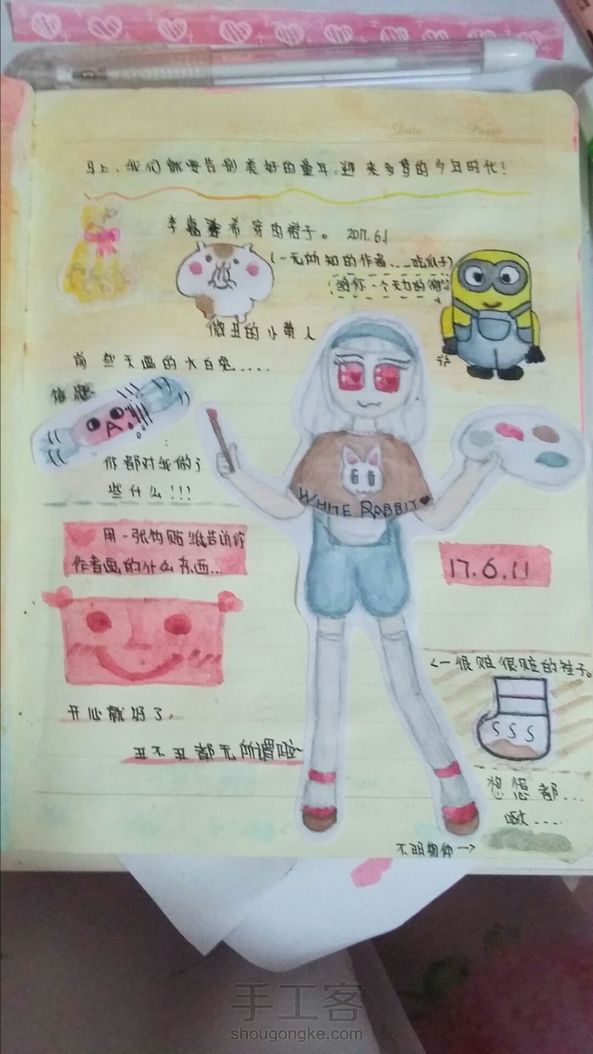 马上,我们就要告别美好的童年,迎来多梦的少年时代!
穿的裙子。 2017.6.1
(一无所知的作者...吃瓜子)
微丑的小黄人
前些天画的大白兔....
你都对我做了
些什么!!!
WHITE RABBIT
用一张钩贴纸告诉你
作者画的什么东西...
17.6.11
<一很脏很脏的袜子。
开心就好了,
丑不丑都无所谓啦~
想想都...
呕....
不明物体→
手工客
shougongke.com